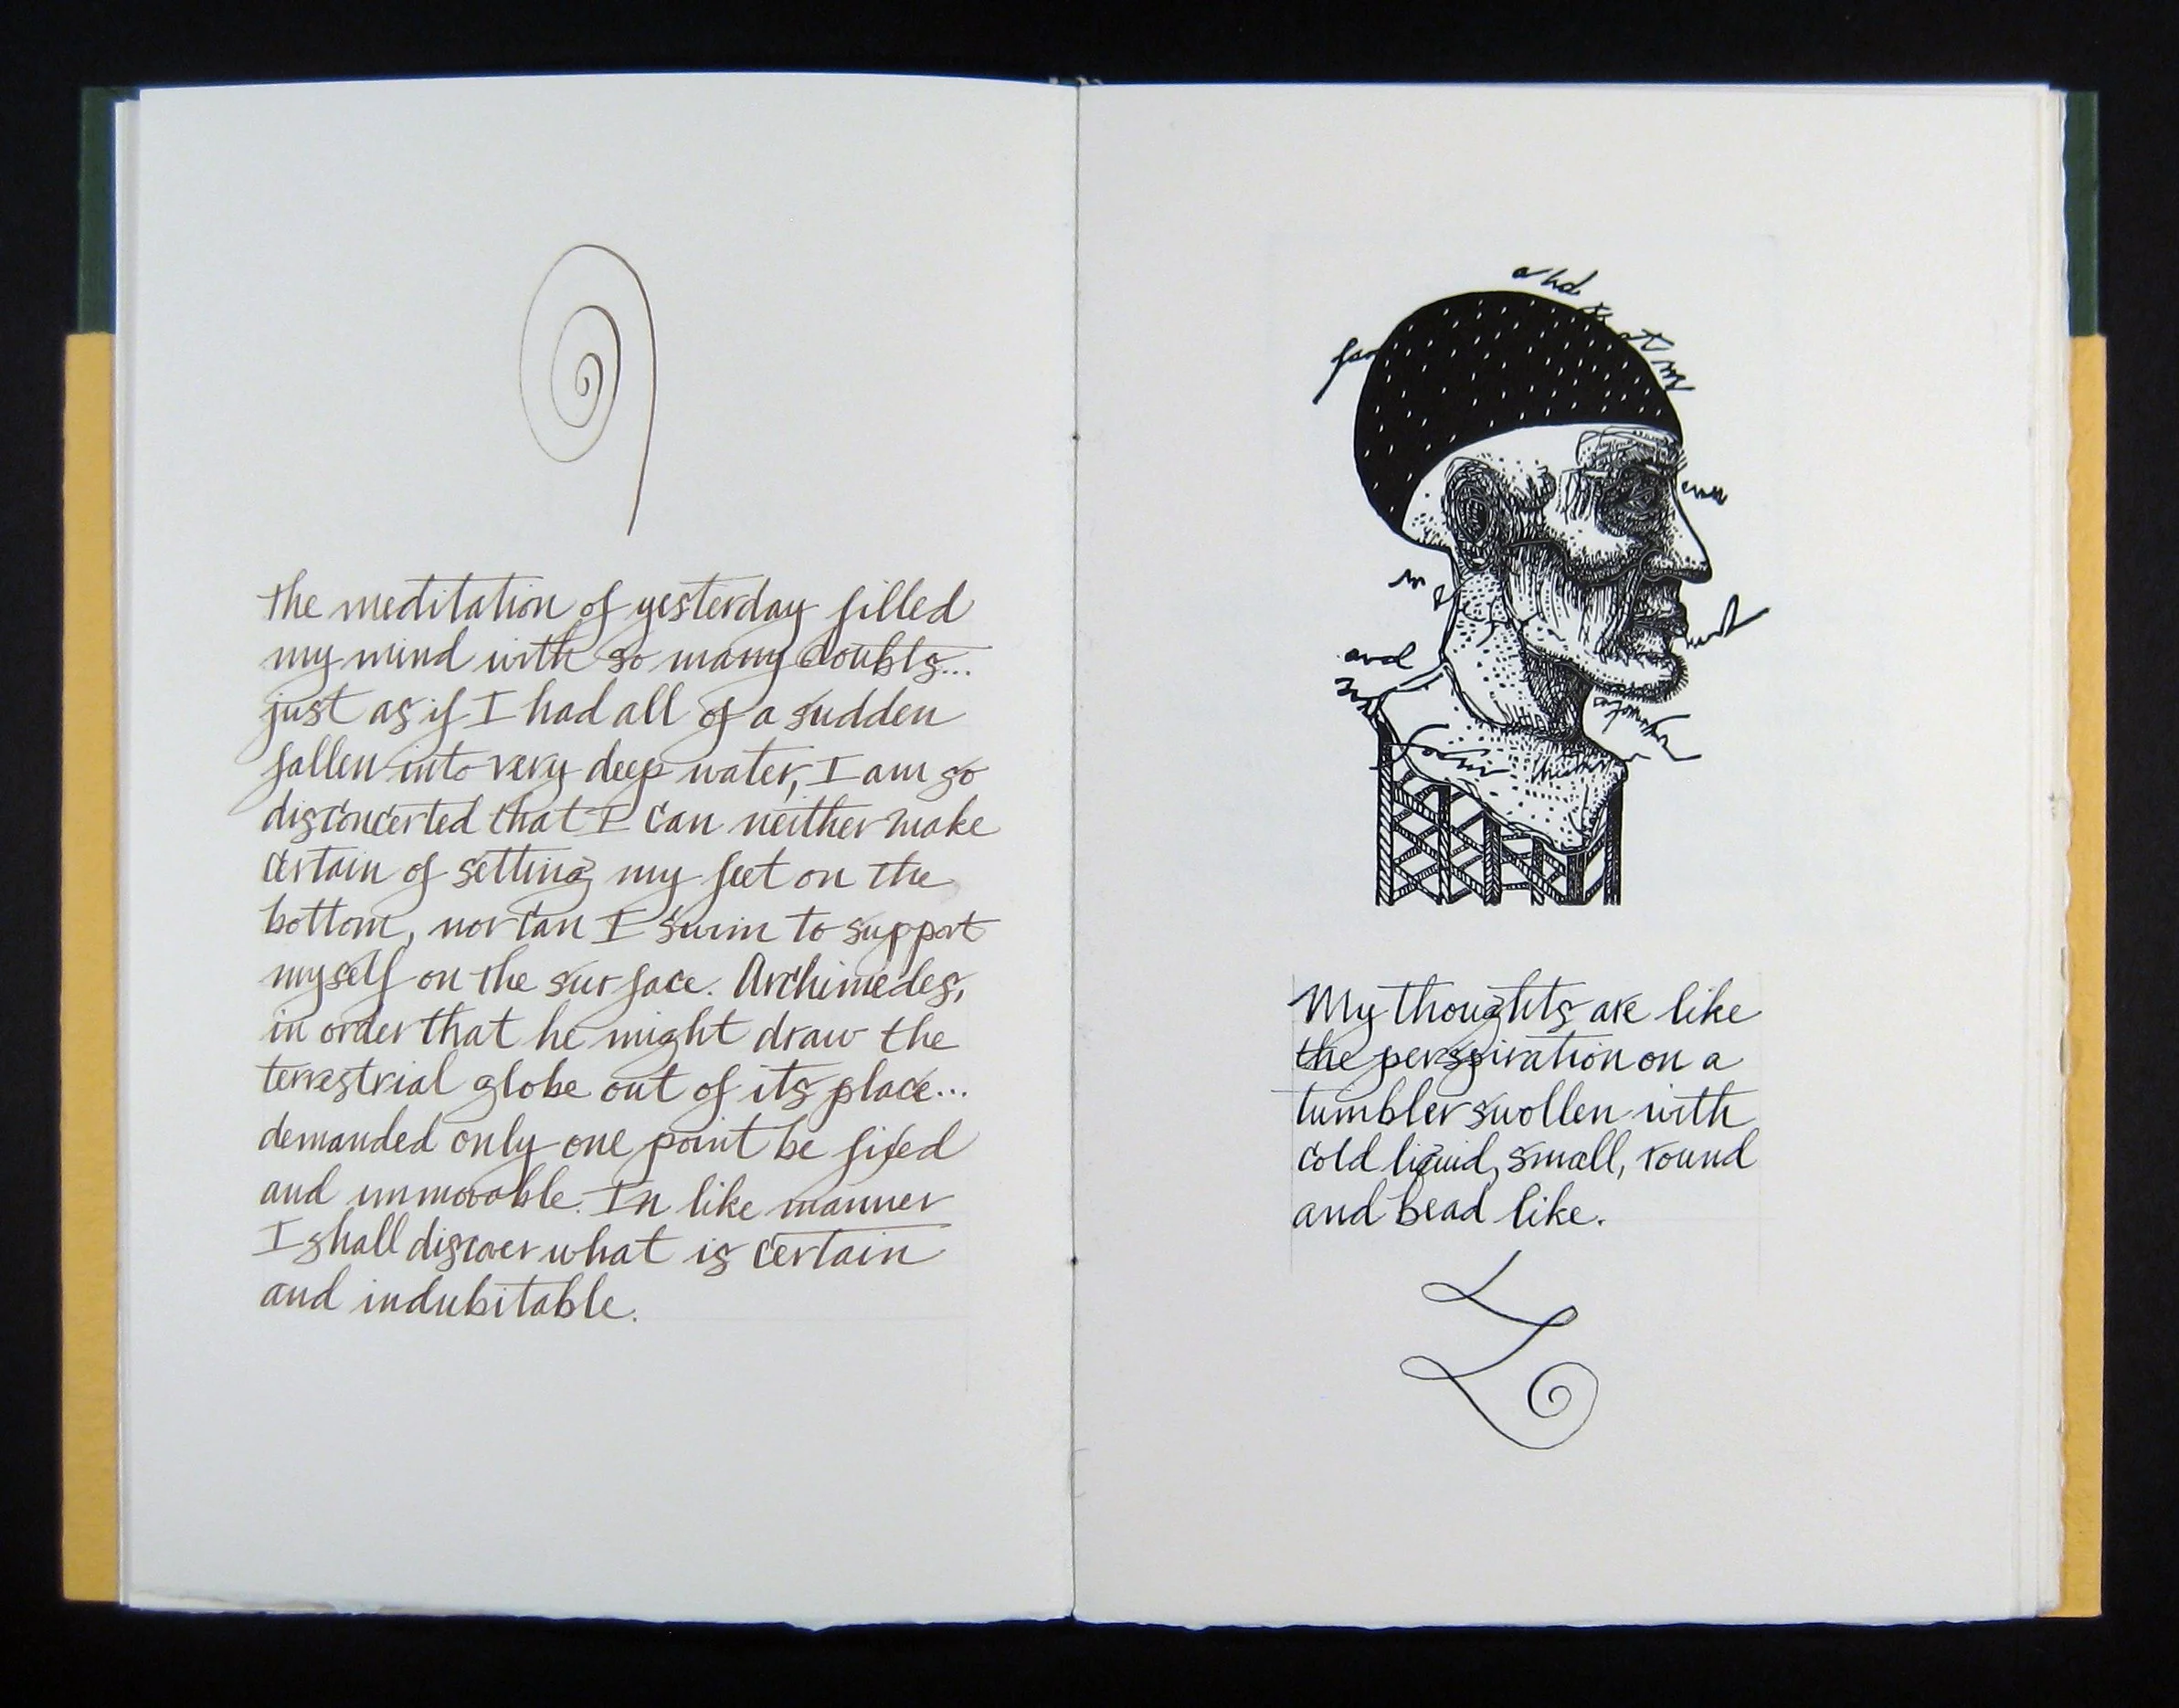 the meditation of yesterday filled
my mind with so many doubts...
just as if I had all of a sudden
fallen into very deep water, I am so
disconcerted that I can neither make
certain of setting my feet on the
bottom, nor can I swim to support
myself on the surface. Archimedes,
in order that he might draw the
terrestrial globe out of its place...
demanded only one point be fixed
and immovable. In like manner
I shall discover what is certain
and indubitable.
and
and
My thoughts are like
the perspiration on a
tumbler swollen with
cold liquid, small, round
and bead like.